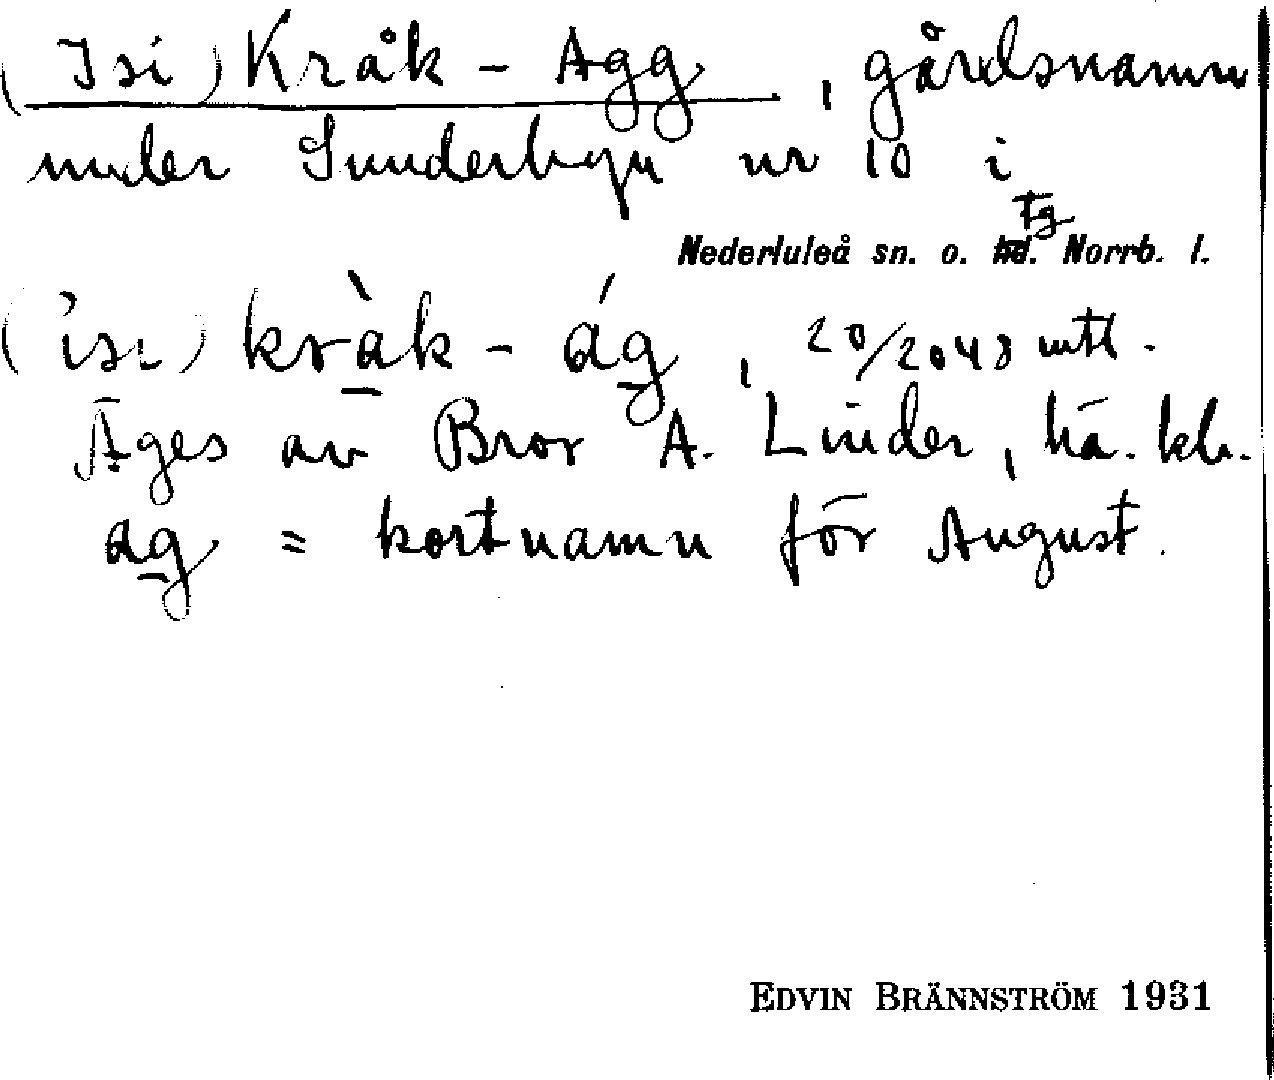 (Isi) Kråk - Agg, gårdsnamn
under Sunderbyn nr 10 i
Nederluleå sn. o. tg Norrb. l.
(ìsı) kràk - ág, 20/2048 mtl.
Äges av Bror A. Linder, hä. kb.
ag = kortnamn för August.
EDVIN BRÄNNSTRÖM 1931